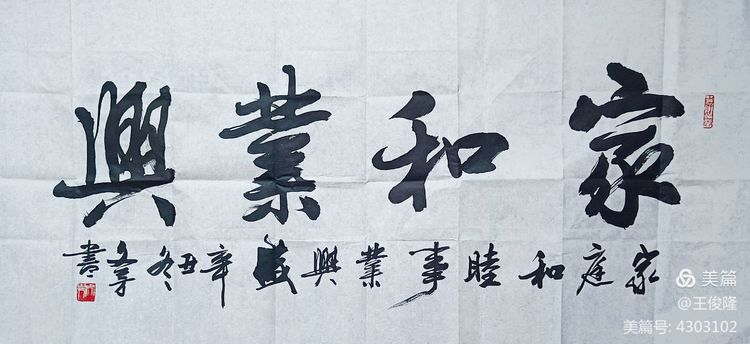 家和業興
家庭和睦事業興盛辛丑冬書
美篇
@王俊隆
美篇号: 4303102